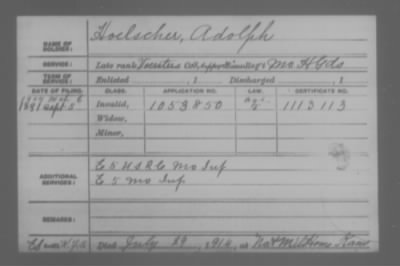 NAME OF SOLDIER: Hoelscher, Adolph
SERVICE: Late rank, Co. Regt Mo H Gds
TERM OF SERVICE: Enlisted , 1 Discharged , 1
DATE OF FILING. CLASS. APPLICATION NO. LAW. CERTIFICATE NO.
1891 Sept 5 Invalid, 1053850 1113113
Widow,
Minor,
ADDITIONAL SERVICES: E 5 U S R C Mo Inf
E 5 Mo Inf
REMARKS:
Died July 29, 1914, at Nat Mil Home Kans